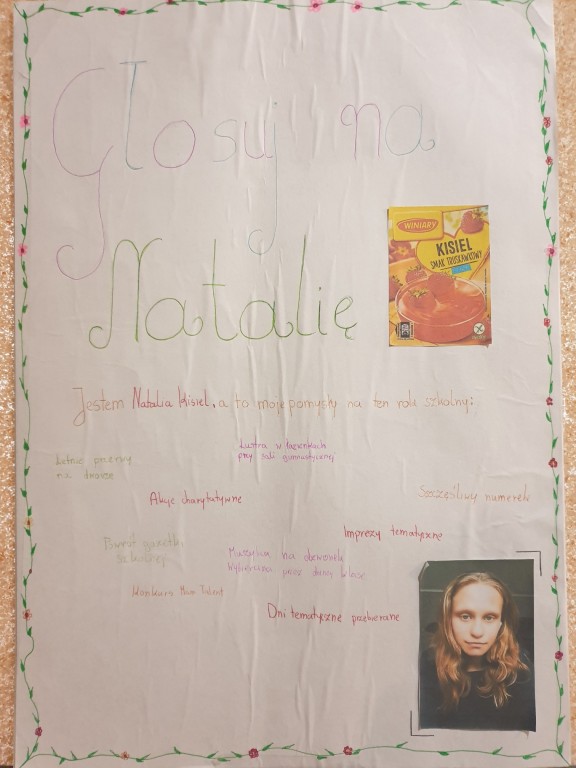 Głosuj na
Natalię
WINIARY
KISIEL
SMAK TRUSKAWKOWY
Jestem Natalia Kisiel, a to moje pomysły na ten rok szkolny:
Lustra w łazienkach
przy sali gimnastycznej
Letnie przerwy
na dworze
Szczęśliwy numerek
Akcje charytatywne
Imprezy tematyczne
Powrót gazetki
szkolnej
Muzyka na dzwonek
wybierana przez daną klasę
Konkurs Mam Talent
Dni tematyczne przebierane